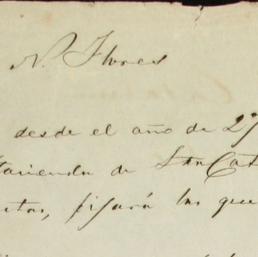 N. Flores
desde el año de 27
Hacienda de Sta Cat
, fijará las que